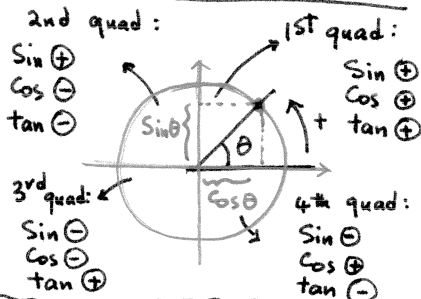 2nd quad:
Sin ⊕
Cos ⊖
tan ⊖
1st quad:
Sin ⊕
Cos ⊕
tan ⊕
Sinθ
θ
+
Cosθ
3rd quad:
Sin ⊖
Cos ⊖
tan ⊕
4th quad:
Sin ⊖
Cos ⊕
tan ⊖